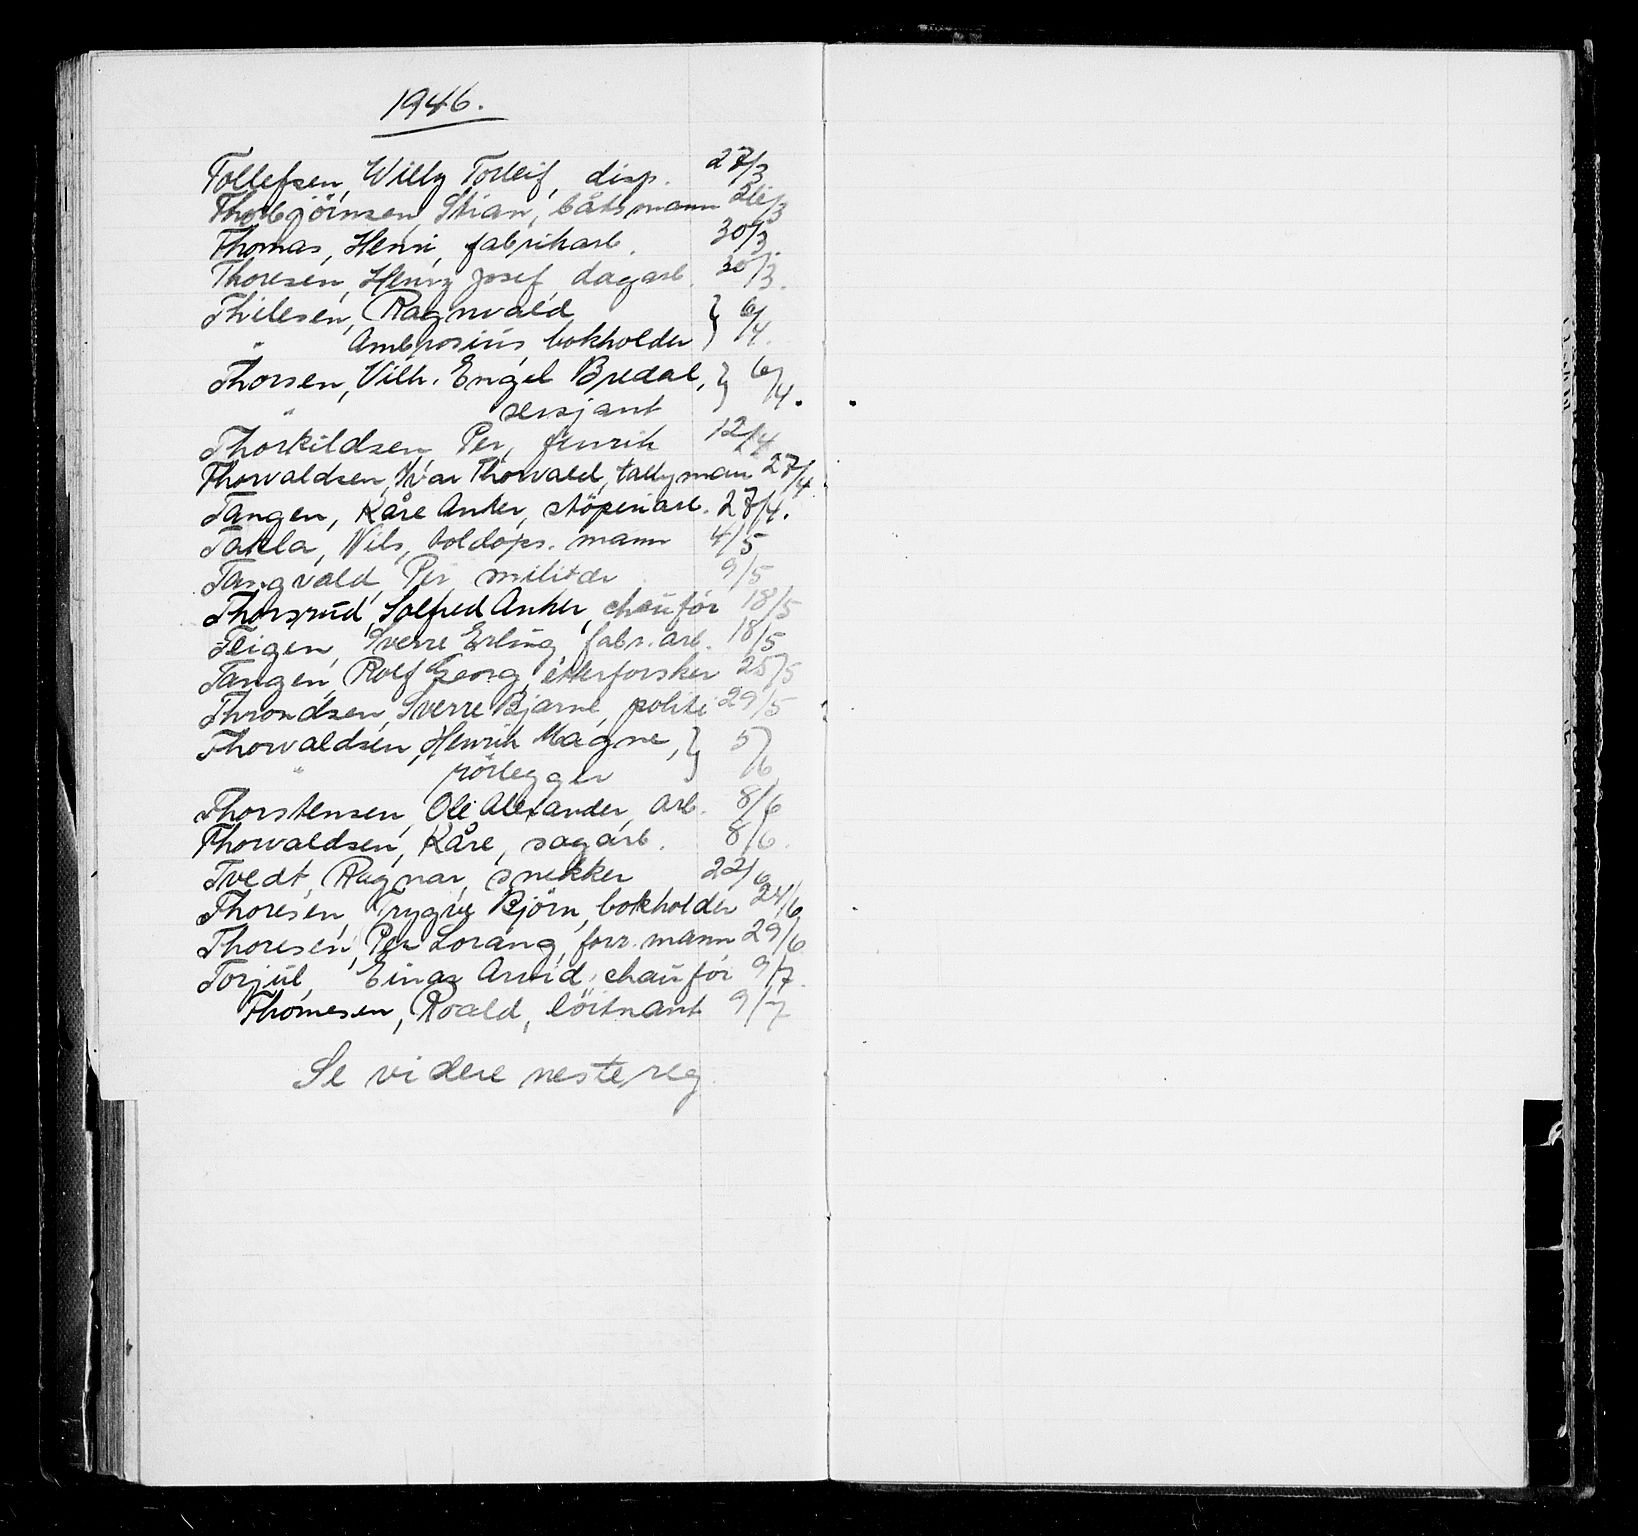 1946.
Tollefsen, Willy Torleif, disp. 27/3
Thorbjörnsen, Stian, båtsmann 26/3
Thomas, Henri, fabrikarb. 30/3.
Thoresen, Henry Josef, dagarb. 30/3.
Thilesen, Ragnvald } 6/4.
" Ambrosius, bokholder
Thorsen, Vilh. Engel Bredal, } 6/4.
" sersjant
Thorkildsen, Per, fenrik 12/4
Thorvaldsen, Ivar Thorvald, tallymann 27/4.
Tangen, Kåre Anker, stöperiarb. 27/4.
Takla, Nils, toldops. mann 4/5
Tangvald, Per, militær 9/5
Thorsrud, Solfred Anker, chauför 18/5
Teigen, Sverre Erling, fabr. arb. 18/5
Tangen, Rolf Georg, etterforsker 25/5
Throndsen, Sverre Bjarne, politi 29/5
Thorvaldsen, Henrik Magne, } 5/6
" rörlegger
Thorstensen, Ole Alexander, arb. 8/6
Thorvaldsen, Kåre, sagarb. 8/6.
Tvedt, Ragnar, snekker 22/6
Thoresen, Trygve Björn, bokholder 24/6
Thoresen, Per Lorang, forr. mann 29/6
Torjul, Einar Arvid, chauför 9/7.
Thomesen, Roald, löitnant 9/7
Se videre neste reg.